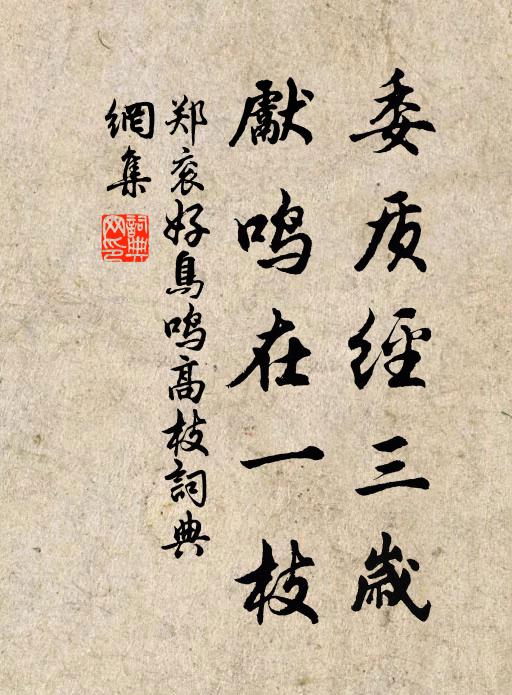 委质經三歳
獻鸣在一枝
郑衮好鳥鸣高枝詞典
網集
詞典
网印